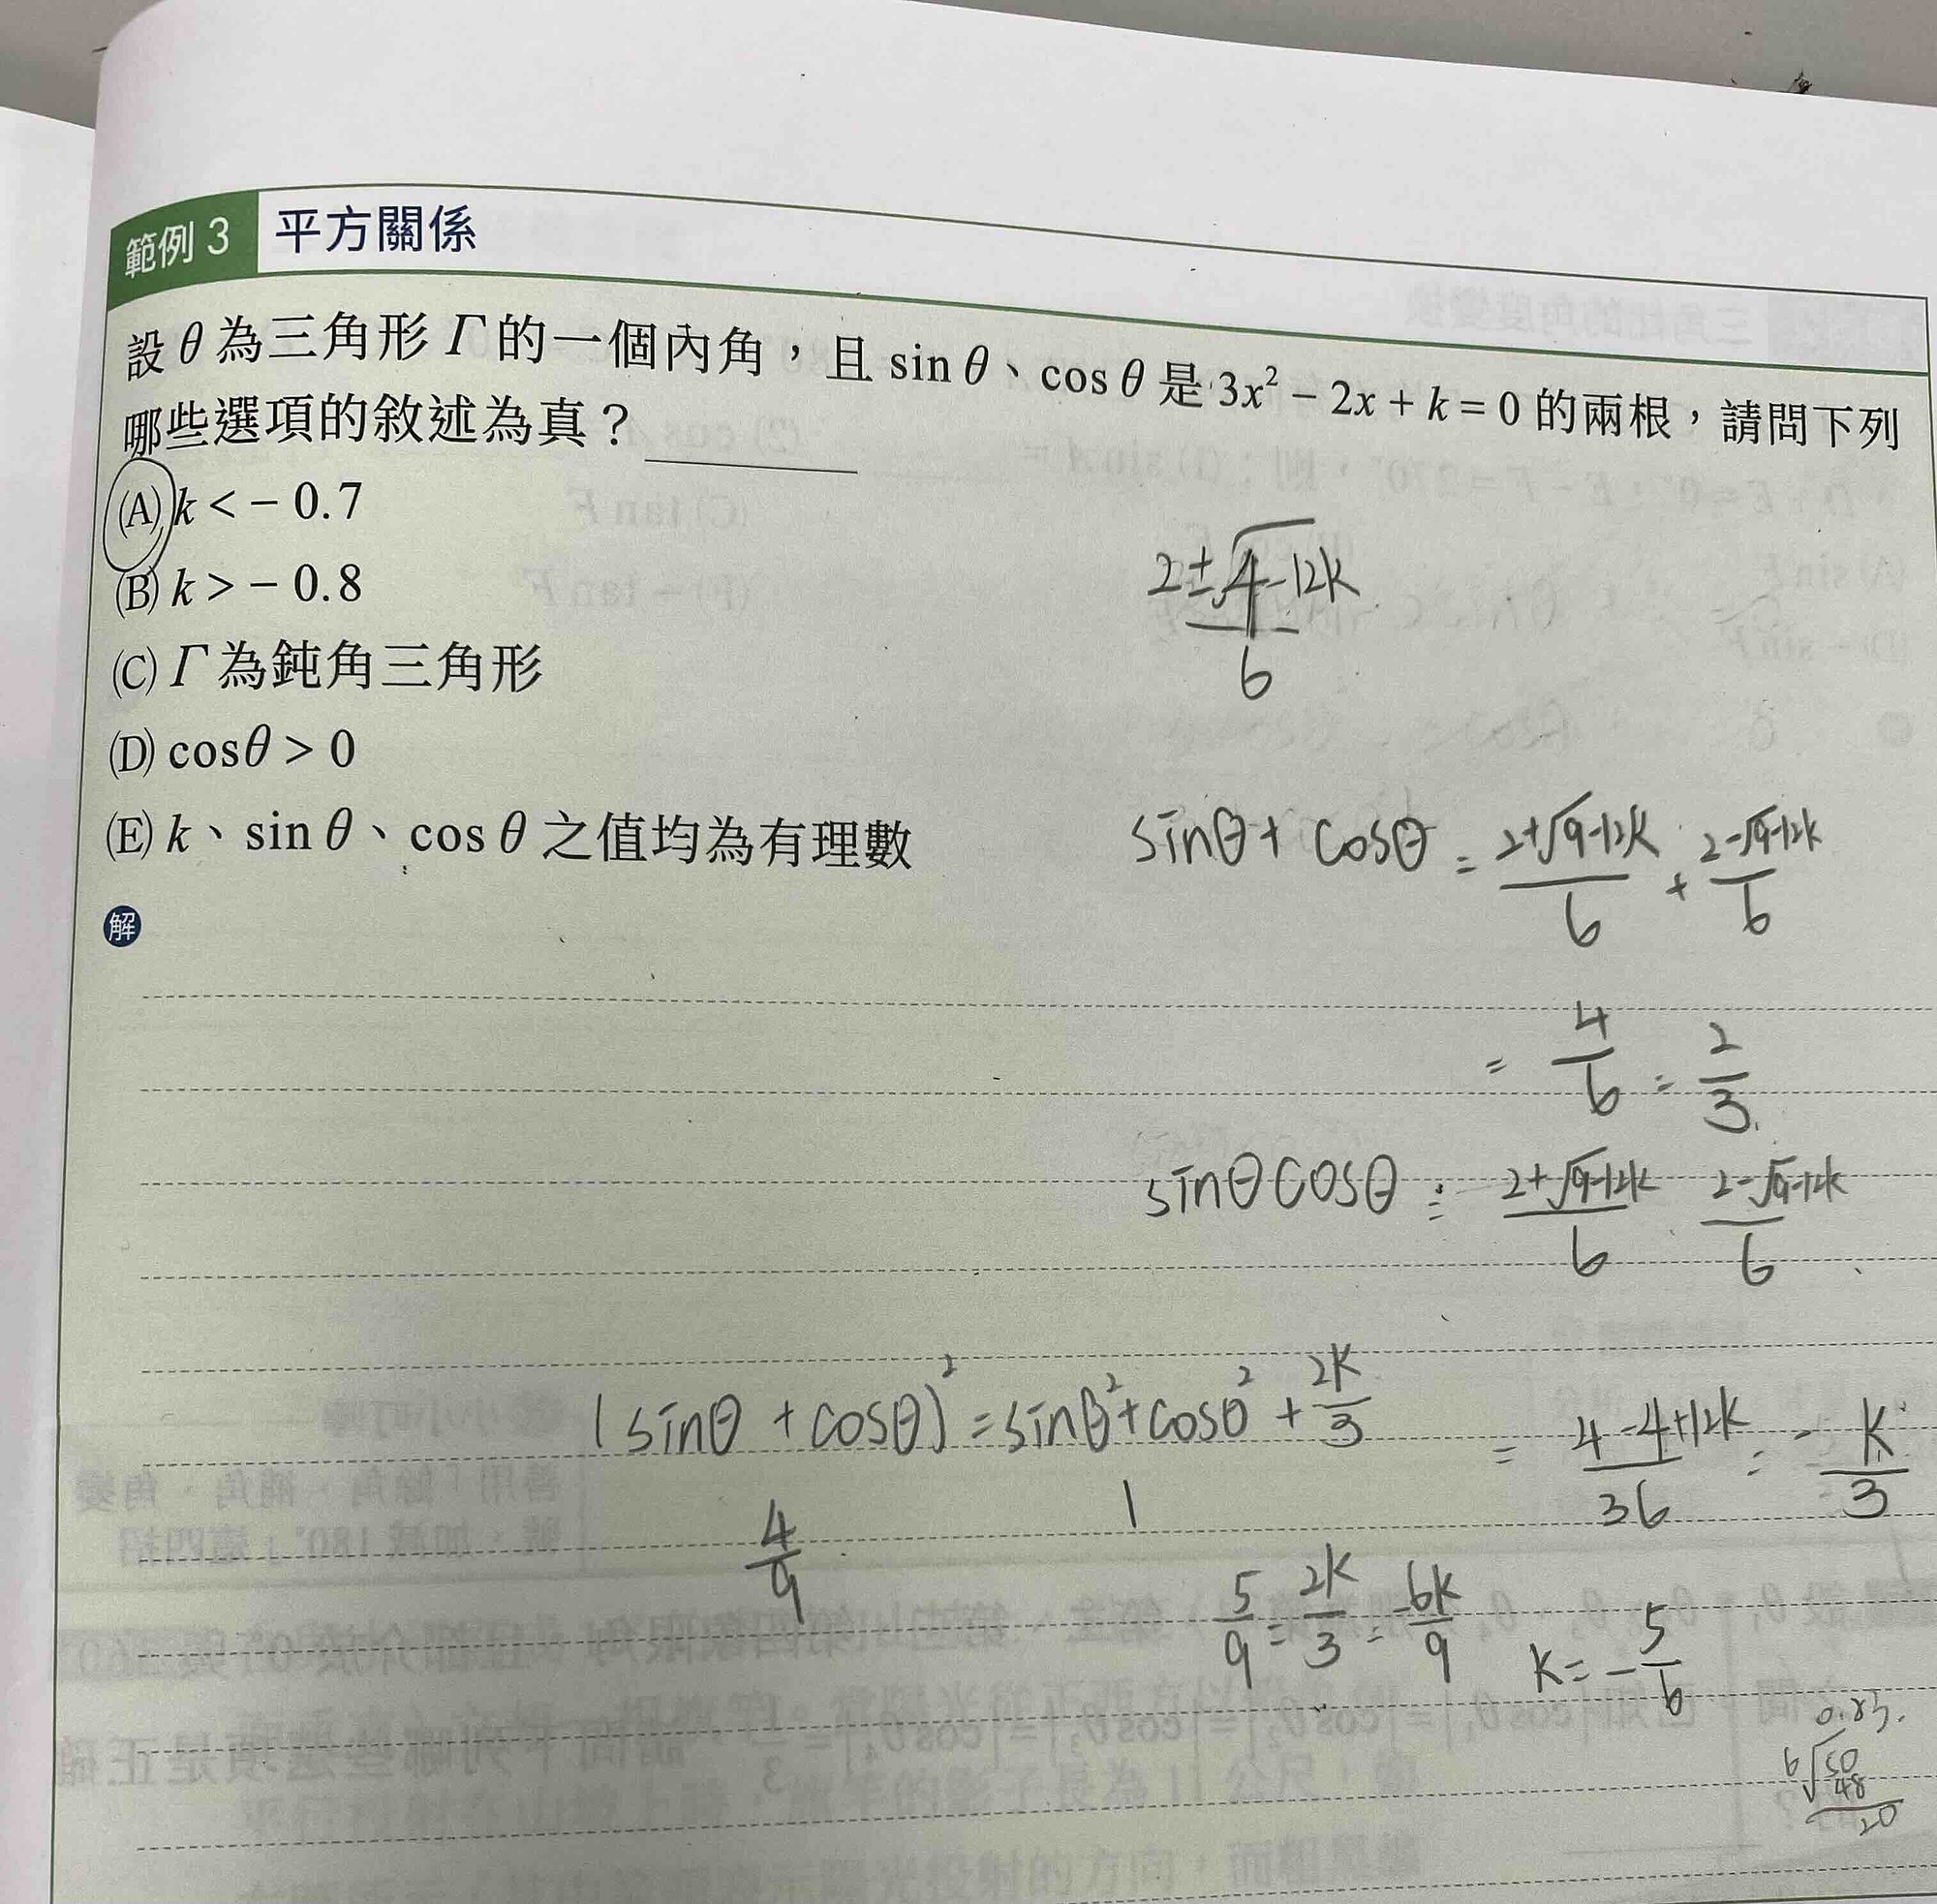 範例 3 平方關係
設 θ 為三角形 Γ 的一個內角，且 sin θ、cos θ 是 3x² − 2x + k = 0 的兩根，請問下列
哪些選項的敘述為真？________
(A) k < − 0.7
(B) k > − 0.8
(C) Γ 為鈍角三角形
(D) cosθ > 0
(E) k、sin θ、cos θ 之值均為有理數
解
2±√4-12k
6
sinθ + cosθ = 2+√9-12k / 6 + 2-√9-12k / 6
= 4/6 = 2/3
sinθcosθ = 2+√9-12k / 6 2-√9-12k / 6
(sinθ + cosθ)² = sinθ² + cosθ² + 2k/3
= 4-4+12k / 36 = - k/3
4/9 1
5/9 = 2k/3 = 6k/9 k = - 5/6
0.83
6√50
48
20